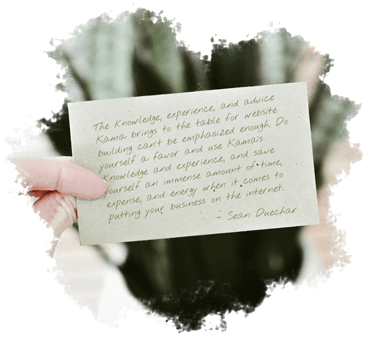 The Knowledge, experience, and advice
Kama brings to the table for website
building can't be emphasized enough. Do
yourself a favor and use Kama's
Knowledge and experience, and save
yourself an immense amount of time,
expense, and energy when it comes to
putting your business on the internet.
- Sean Duechar